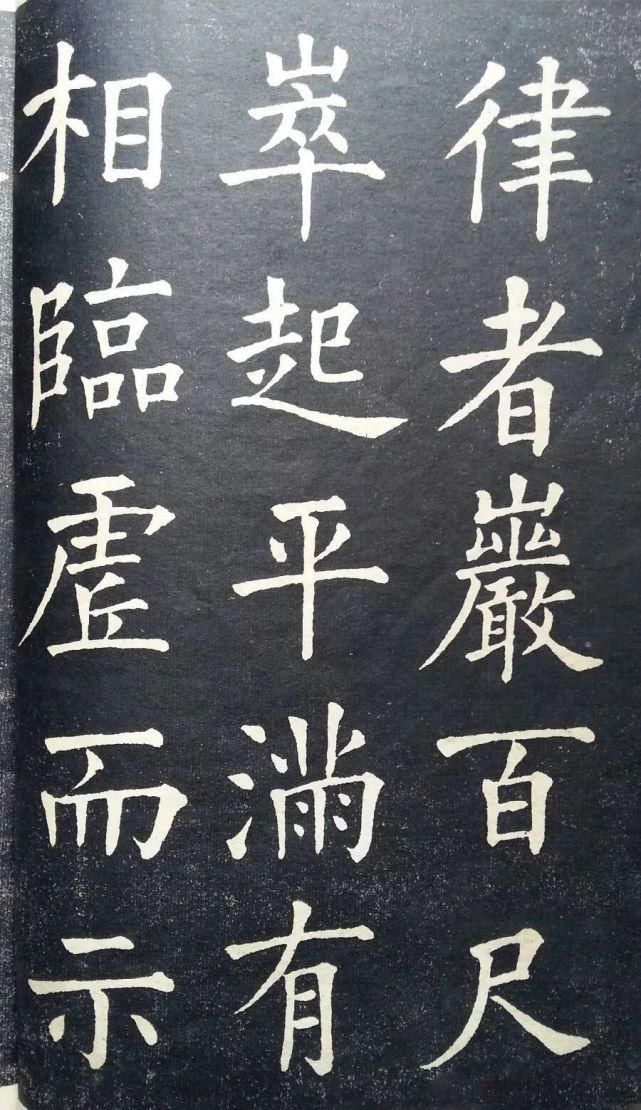 律者巖百尺
崒起平滿有
相臨虛而示